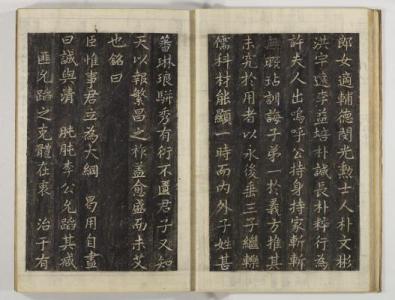 郎女適輔德閔光勲士人朴文彬
洪宇遠李益培朴誠長朴粹行為
許夫人出嗚呼公持身持家斬斬
無瑕玷訓誨子弟一於義方推其
未究於用者以永後垂三子繼轢
儒科材能顯一時而內外子姓甚
蕃琳琅騈秀有衍不匱君子又知
天以報繁昌之祚益愈盛而未艾
也銘曰
臣惟事君立為大綱 曷用自盡
曰誠與清 肫肫李公允蹈其咸
匪允蹈之克體在衷 治于有